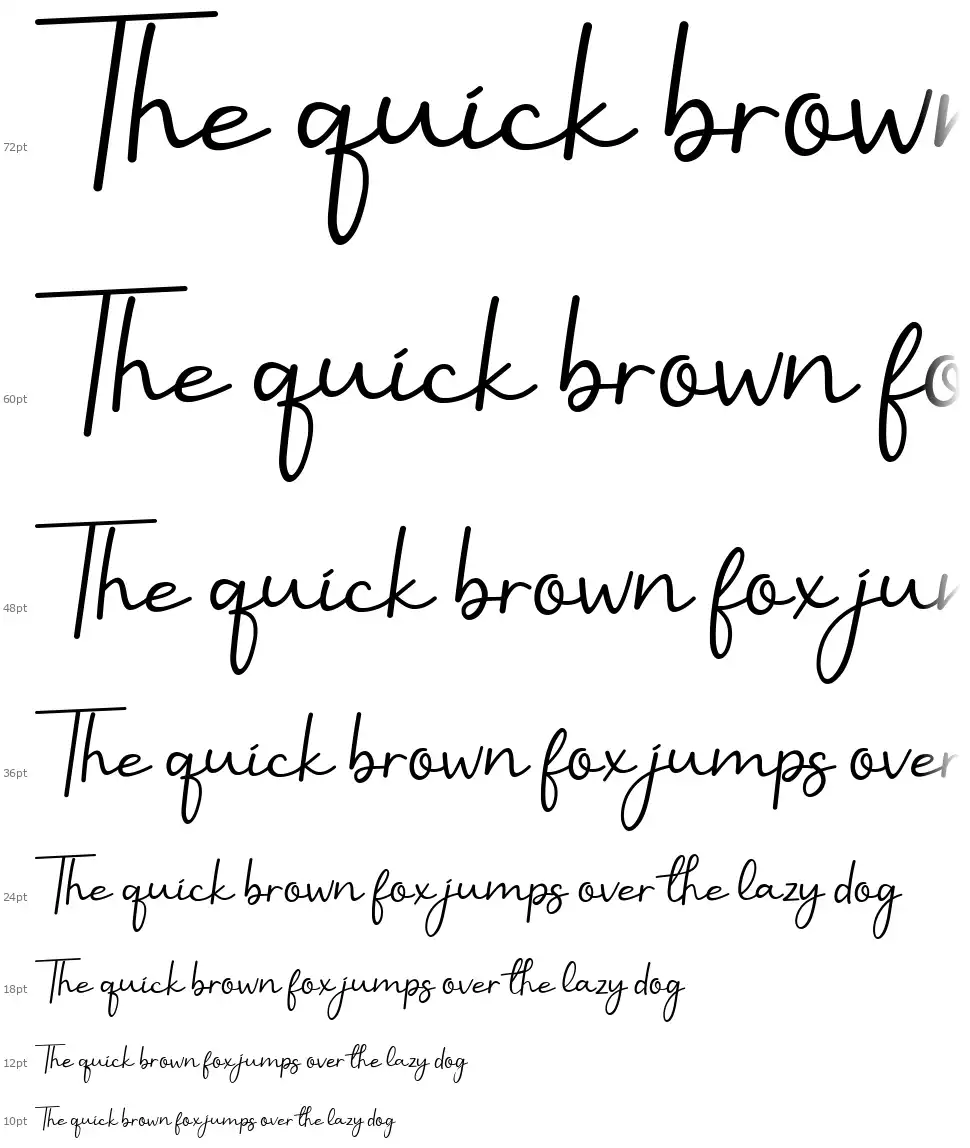 72pt The quick brown
60pt The quick brown fo
48pt The quick brown fox jun
36pt The quick brown fox jumps over
24pt The quick brown fox jumps over the lazy dog
18pt The quick brown fox jumps over the lazy dog
12pt The quick brown fox jumps over the lazy dog
10pt The quick brown fox jumps over the lazy dog